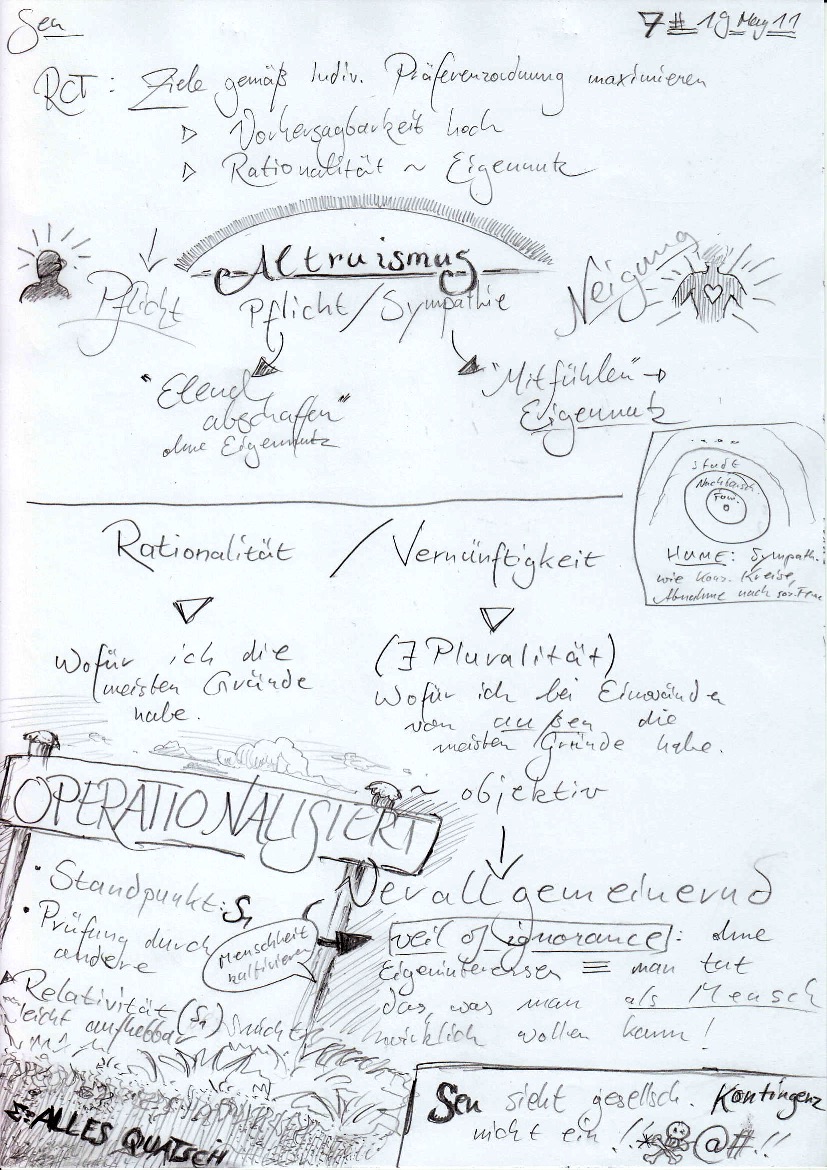 Sen
7# 19 May 11
RCT: Ziele gemäß Indiv. Präferenzordnung maximieren
▷ Vorhersagbarkeit hoch
▷ Rationalität ~ Eigennutz
Altruismus
Pflicht
Pflicht / Sympathie
Neigung
"Elend
abschaffen"
ohne Eigennutz
"Mitfühlen" →
Eigennutz
Stadt
Nachbarsch.
Fam.
HUME: Sympath.
wie konz. Kreise,
Abnahme nach soz. Fern
Rationalität / Vernünftigkeit
Wofür ich die
meisten Gründe
habe.
(∃ Pluralität)
Wofür ich bei Einwänden
von außen die
meisten Gründe habe.
~ objektiv
OPERATIONALISIERT
Verallgemeinernd
• Standpunkt: S₁
• Prüfung durch
andere
Menschheit
kultivieren
Relativität (S₁)
leicht aufhebbar
veil of ignorance: ohne
Eigeninteressen ≡ man tut
das, was man als Mensch
wirklich wollen kann!
Σ: ALLES QUATSCH
Sen sieht gesellsch. Kontingenz
nicht ein !!* @#!!